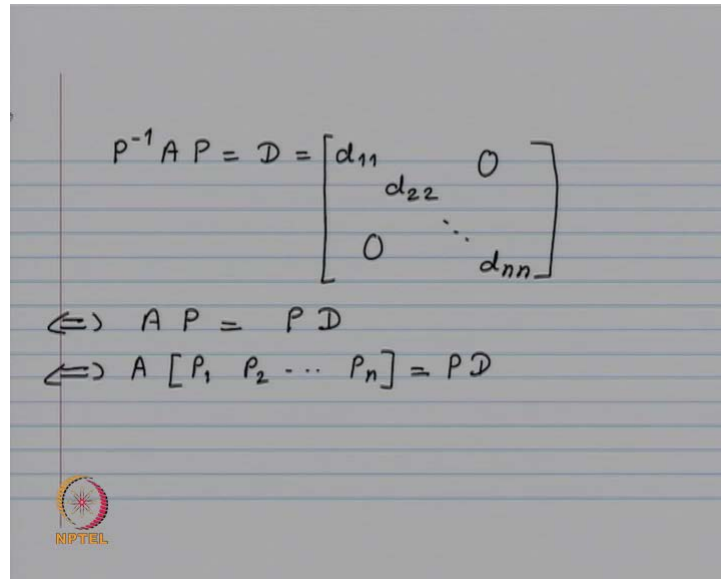 P⁻¹ A P = D = [d₁₁ 0
d₂₂
0 ⋱
dₙₙ]
⇔ A P = P D
⇔ A [P₁ P₂ ... Pₙ] = P D
NPTEL